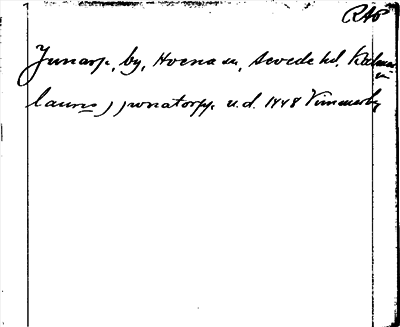 RAp
Junarp, by, Hvena sn, Sevede hd. Kalmar
län
laurij jwnatorpp u.d. 1448 Vimmerby